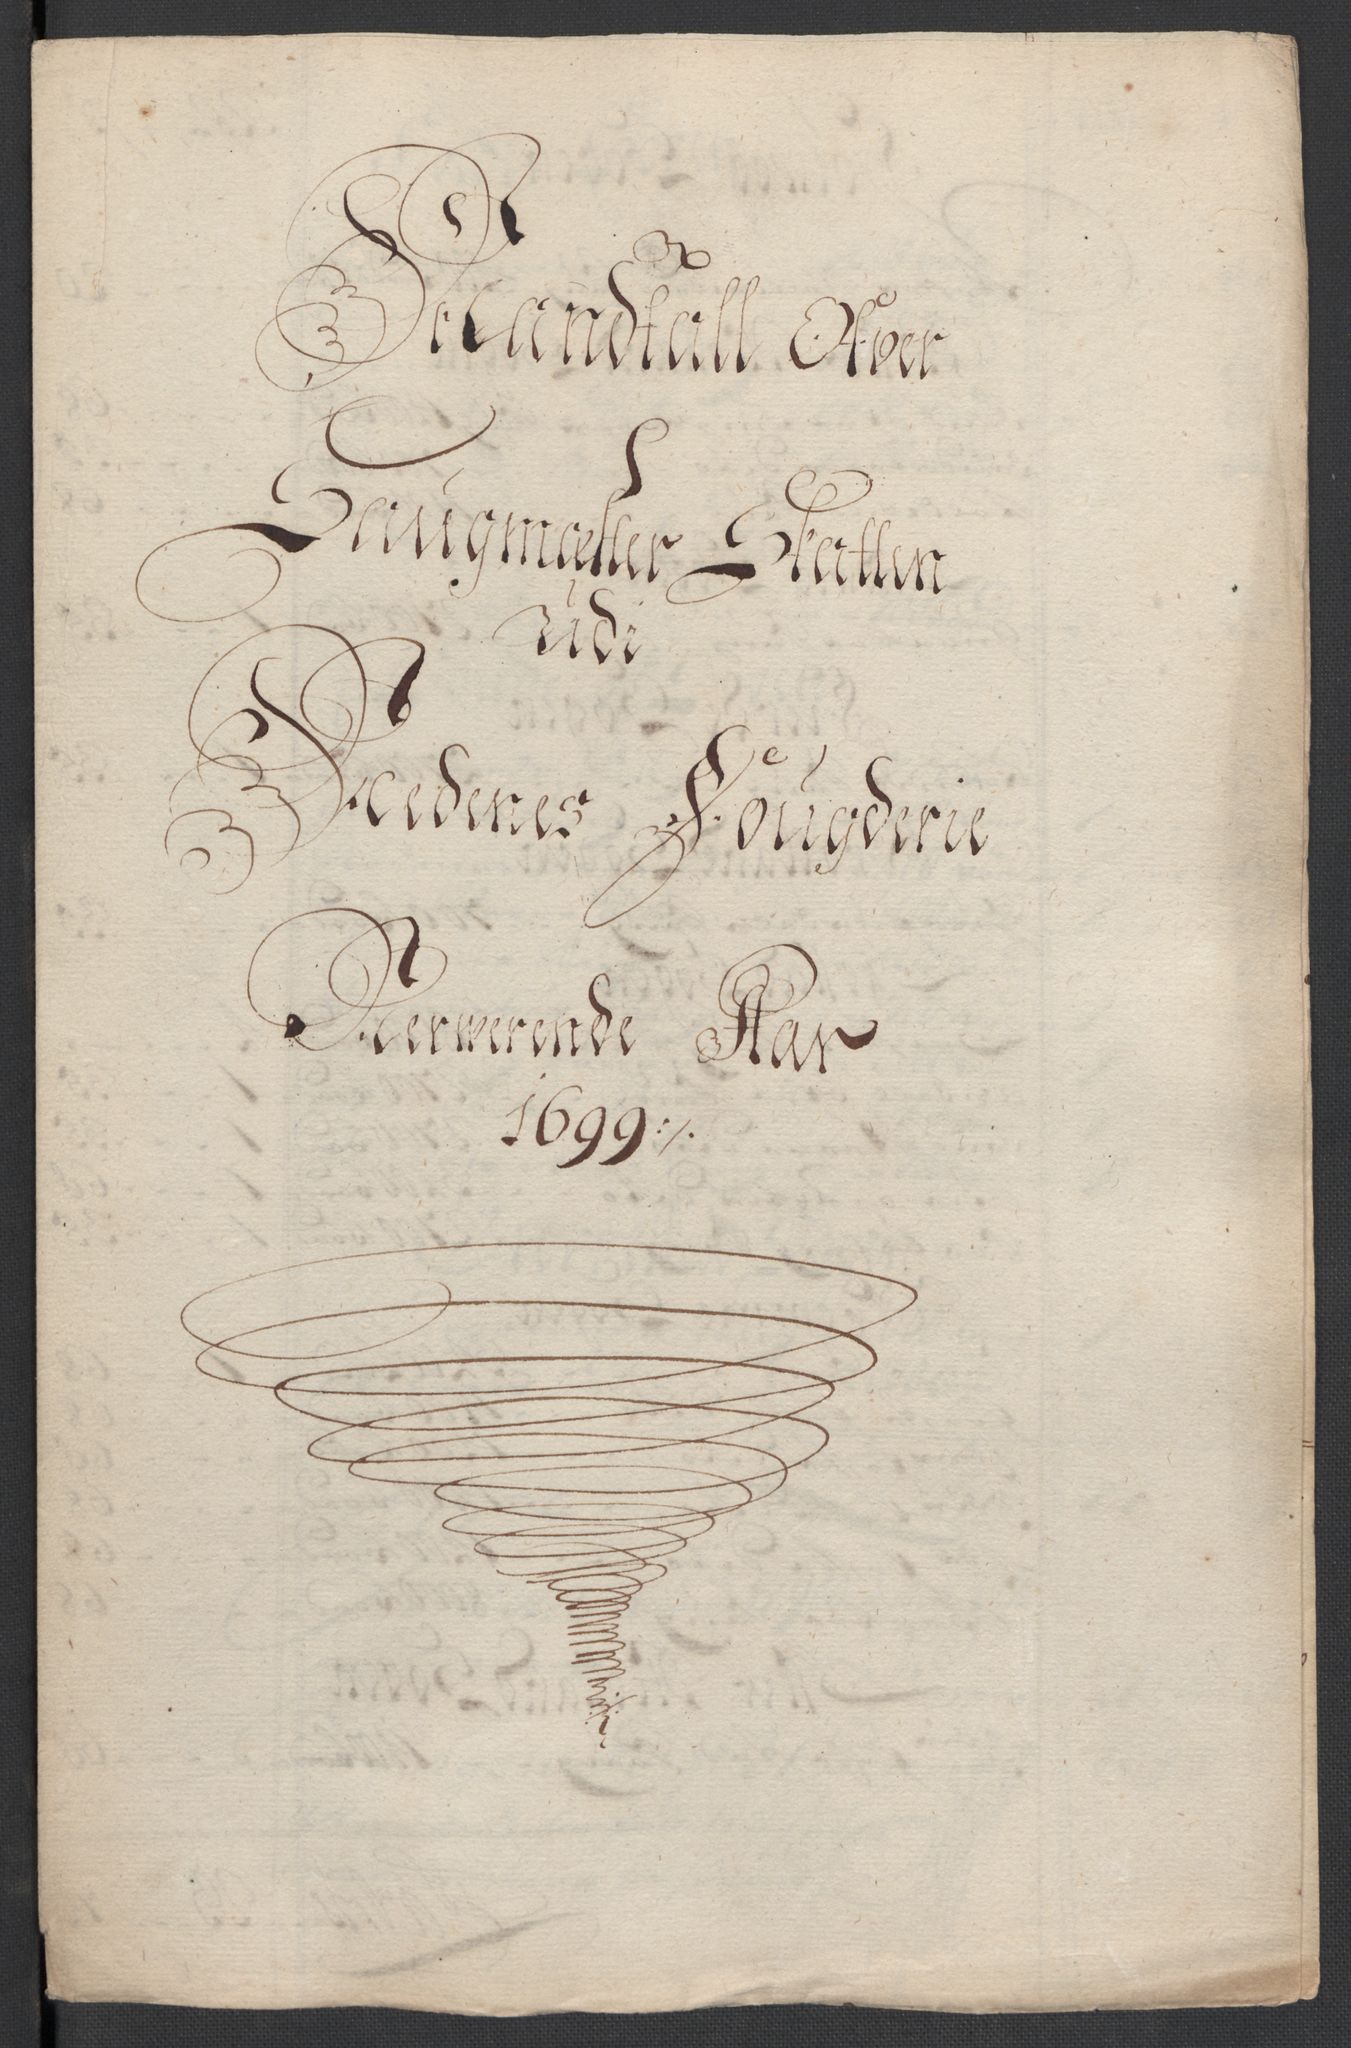 Mandtall Ofver
Saugmester Skatten
udi
Nedenes Fougderie
Nerwerende Aar
1699 ./.